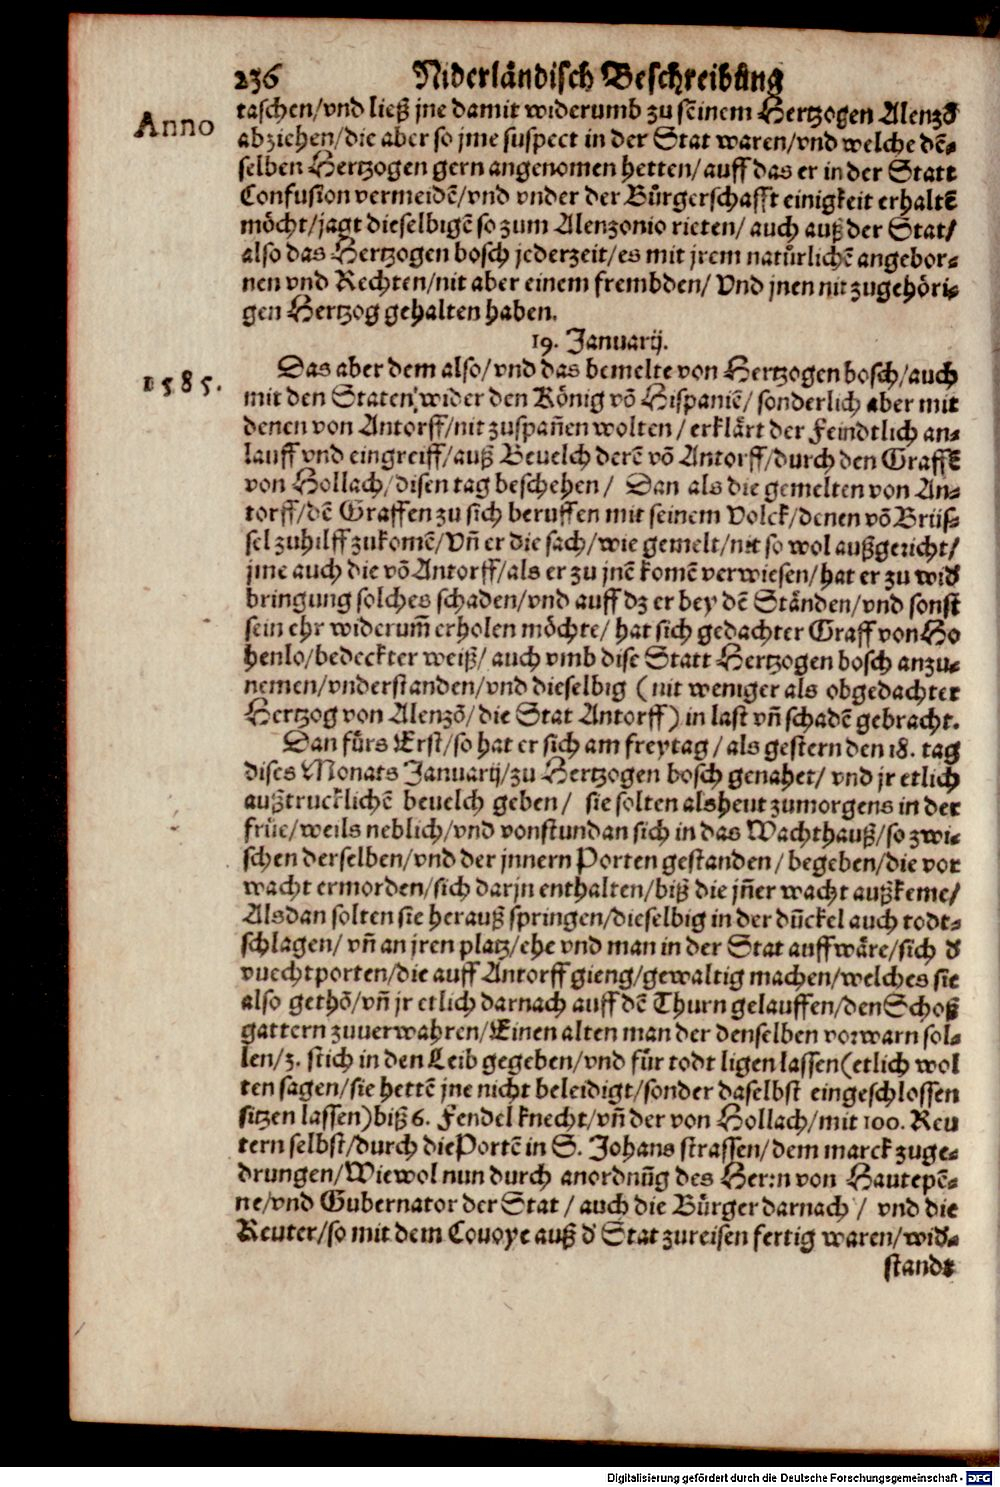 236 Niderländisch Beschreibung
Anno
taschen/vnd ließ jne damit widerumb zu seinem Hertzogen Alenzō
abziehen/die aber so jme suspect in der Stat waren/vnd welche dē-
selben Hertzogen gern angenomen hetten/auff das er in der Statt
Confusion vermeidē/vnd vnder der Bürgerschafft einigkeit erhaltē
möcht/jagt dieselbigē so zum Alenzonio rieten/ auch auß der Stat/
also das Hertzogen bosch jederzeit/es mit jrem natürlichē angebor-
nen vnd Rechten/nit aber einem frembden/ Vnd jnen nit zugehöri-
gen Hertzog gehalten haben.
19. Januarij.
1585.
Das aber dem also/vnd das bemelte von Hertzogen bosch/auch
mit den Staten/wider den König vō Hispaniē/ sonderlich aber mit
denen von Antorff/nit zuspañen wolten/ erklärt der Feindtlich an-
lauff vnd eingreiff/auß Beuelch derē vō Antorff/durch den Graffē
von Hollach/disen tag beschehen/ Dan als die gemelten von An-
torff/dē Graffen zu sich beruffen mit seinem Volck/denen vō Brüs-
sel zuhilff zukomē/Vñ er die sach/wie gemelt/nit so wol außgericht/
jme auch die vō Antorff/als er zu jnē komē verwiesen/hat er zu wid
bringung solches schaden/vnd auff dz er bey dē Ständen/vnd sonst
sein ehr widerum̃ erholen möchte/ hat sich gedachter Graff von Ho
henlo/bedeckter weiß/ auch vmb dise Statt Hertzogen bosch anzu-
nemen/vnderstanden/vnd dieselbig (nit weniger als obgedachter
Hertzog von Alenzō/die Stat Antorff) in last vñ schadē gebracht.
Dan fürs Erst/so hat er sich am freytag/ als gestern den 18. tag
dises Monats Januarij/zu Hertzogen bosch genahet/ vnd jr etlich
außtrucklichē beuelch geben/ sie solten als heut zumorgens in der
früe/weils neblich/vnd vonstundan sich in das Wachthauß/so zwi-
schen derselben/vnd der jnnern Porten gestanden/ begeben/die vor
wacht ermorden/sich darjn enthalten/biß die jñer wacht außkeme/
Als dan solten sie herauß springen/dieselbig in der dũckel auch todt-
schlagen/ vñ an jren platz/ehe vnd man in der Stat auff wäre/sich d
vuechtporten/die auff Antorff gieng/gewaltig machen/welches sie
also gethō/vñ jr etlich darnach auff dē Thurn gelauffen/den Schoß
gattern zuuerwahren/Einen alten man der denselben verwarn sol-
len/3. stich in den Leib gegeben/vnd für todt ligen lassen(etlich wol
ten sagen/sie hettē jne nicht beleidigt/sonder daselbst eingeschlossen
sitzen lassen)biß 6. Fendel knecht/vñ der von Hollach/mit 100. Reu
tern selbst/durch die Portē in S. Johans strassen/dem marck zuge-
drungen/Wiewol nun durch anordnũg des Herrn von Hautepē-
ne/vnd Gubernator der Stat/ auch die Bürger darnach/ vnd die
Reuter/so mit dem Covoye auß d Stat zureisen fertig waren/wid-
standt
Digitalisierung gefördert durch die Deutsche Forschungsgemeinschaft - DFG